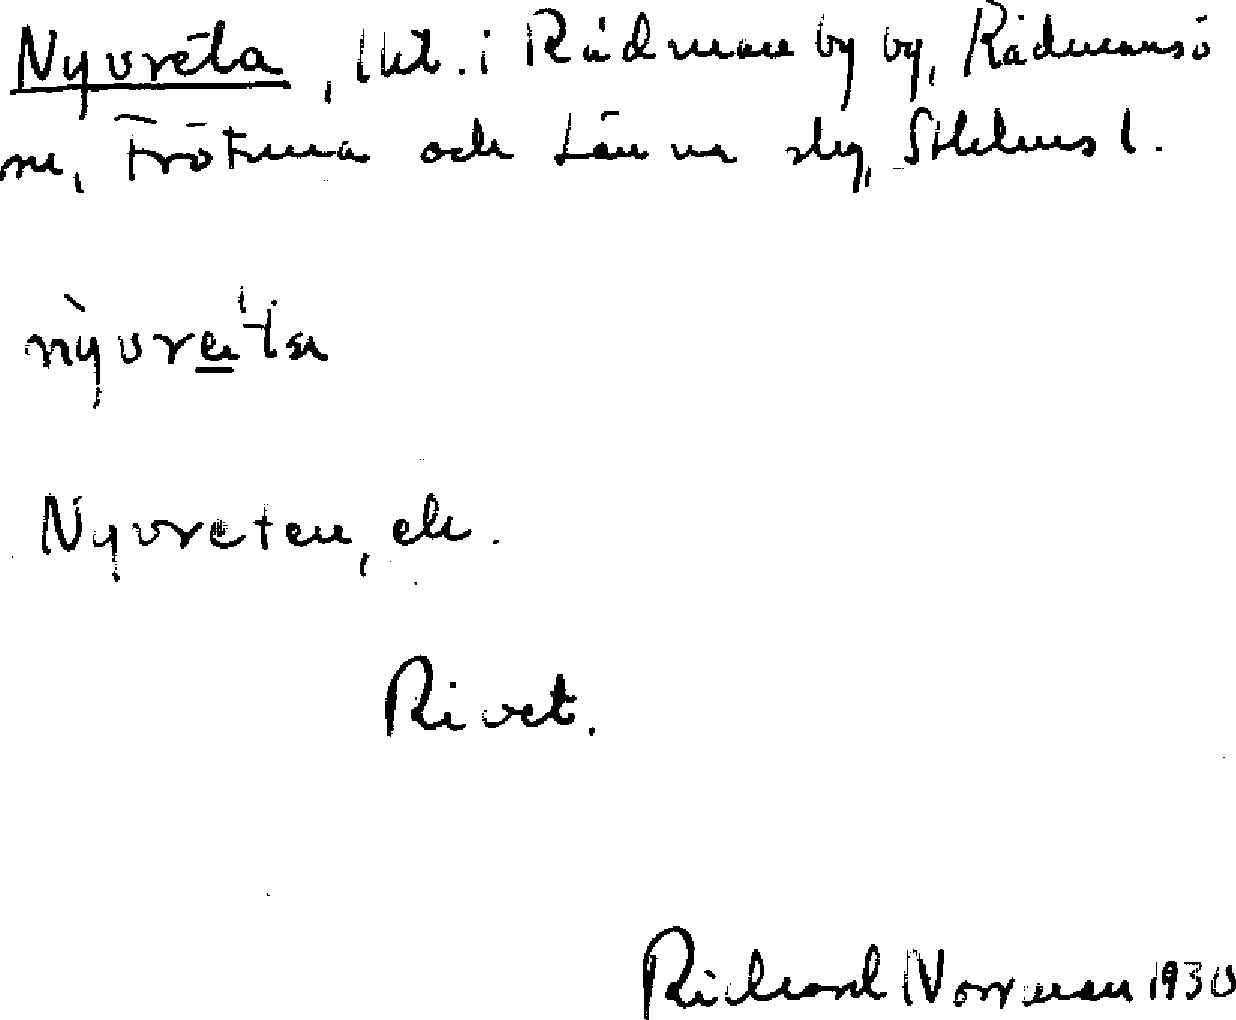 Nyvreta, lht. i Rådmanby by, Rådmansö
sn, Frötuna och Länna slg, Sthlms l.
nỳvre̲ˈta
Nyvreten, ek.
Rivet.
Richard Norrman 1930